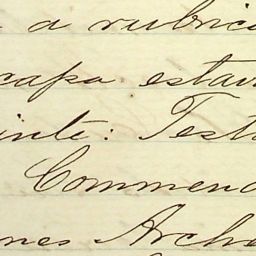 a rubric
capa estav
inte: Test
Commend
nes Arche